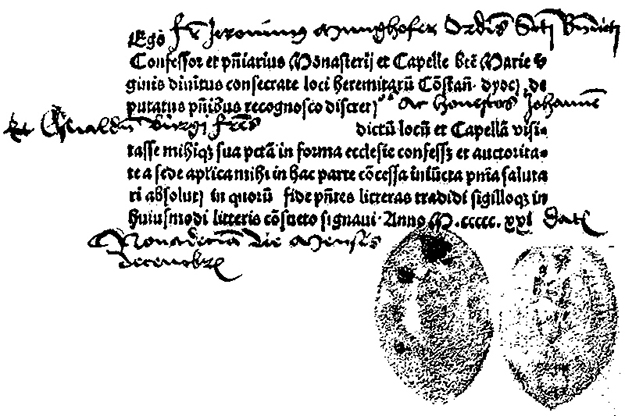 Ego fr̄ Jeronimus Munghofer Ordīs Scti Bn̄dicti
Confessor et pn̄iarius Monasterij et Capelle btē Marie v
ginis divinitus consecrate loci heremitarū Cōstan̄· dyoc̄· de
putatus pn̄ibus recognosco discret Ac honestos Johannē
et Oswaldū frēs dictū locū et Capellā visi-
tasse mihiqz sua pctā in forma ecclesie confessz et auctorita-
te a sede aplica mihi in hac parte cōcessa iniūcta pn̄ia saluta
ri absoluti in quorū fide pn̄tes litteras tradidi sigilloqz in
huiusmodi litteris cōsueto signavi· Anno M.ccccc. xxi Dat
die Mensis
Decembr